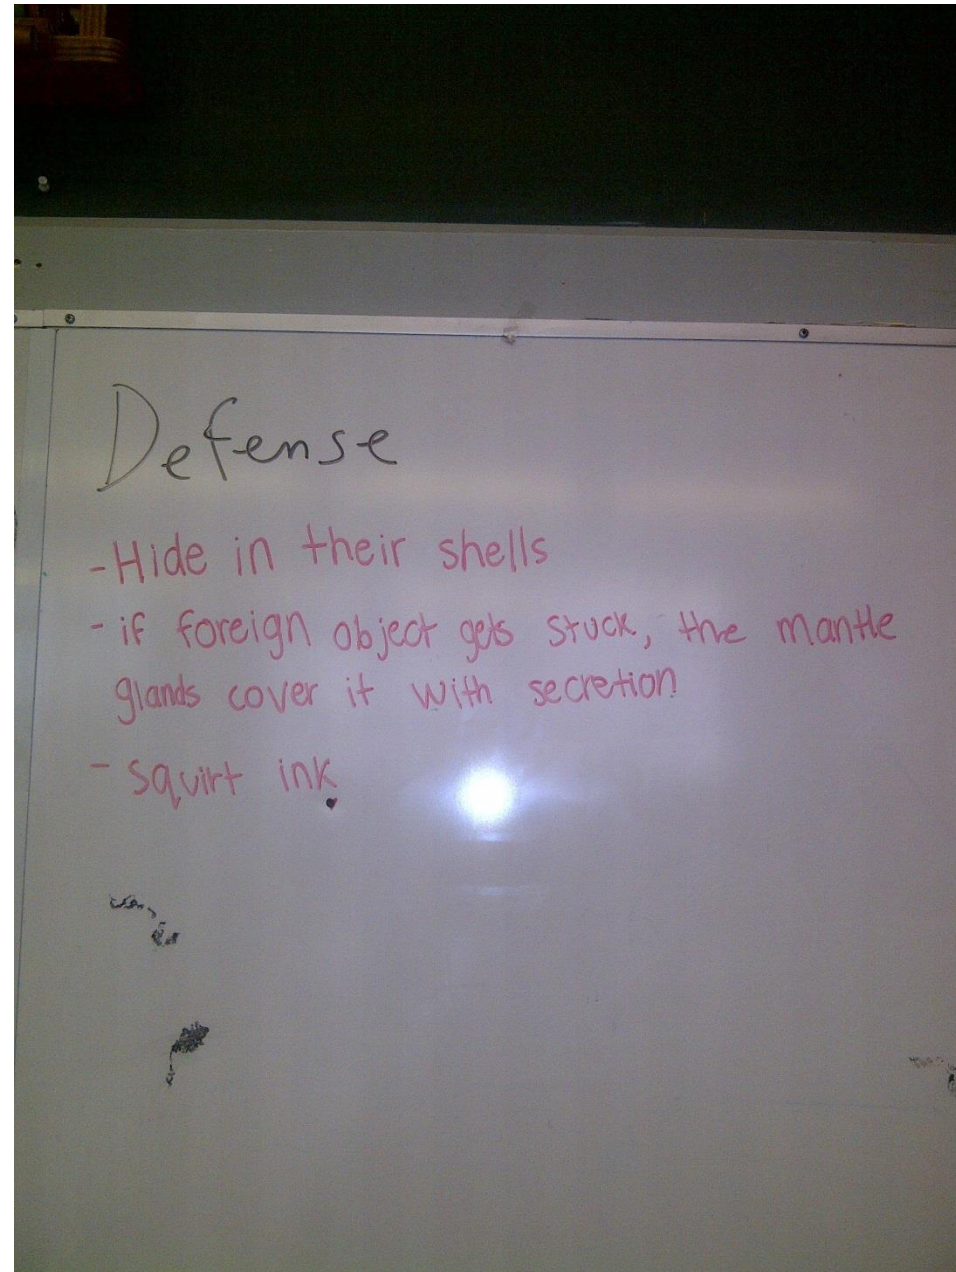 Defense
-Hide in their shells
- if foreign object gets stuck, the mantle
glands cover it with secretion
- squirt ink.